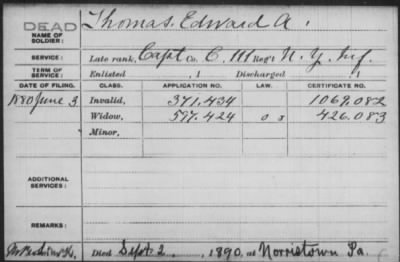 DEAD
NAME OF SOLDIER: Thomas, Edward A.
SERVICE: Late rank, Capt Co. C, 111 Reg't N. Y. Inf.
TERM OF SERVICE: Enlisted , 1 Discharged , 1
DATE OF FILING. CLASS. APPLICATION NO. LAW. CERTIFICATE NO.
1880 June 3 Invalid, 371,434 1069.082
Widow, 597.424 426.083
Minor,
ADDITIONAL SERVICES:
REMARKS:
Died Sept 2, 1890, at Norristown Pa.